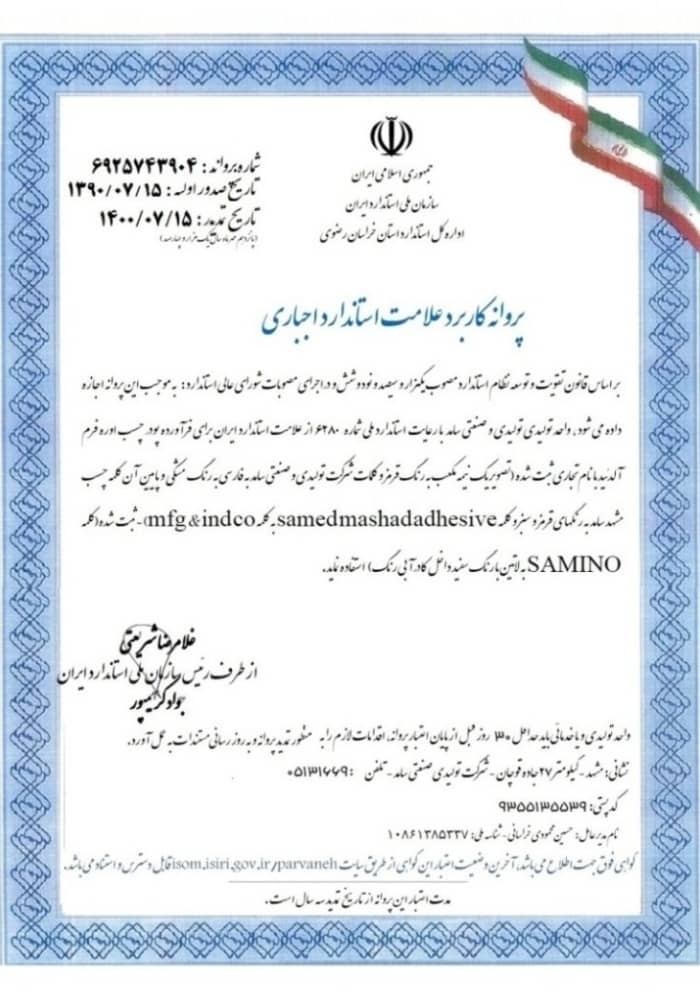 جمهوری اسلامی ایران
سازمان ملی استاندارد ایران
اداره کل استاندارد استان خراسان رضوی
شماره پروانه : ۶۹۲۵۷۴۳۹۰۴
تاریخ صدور اولیه : ۱۳۹۰/۰۷/۱۵
تاریخ تمدید : ۱۴۰۰/۰۷/۱۵
(پانزدهم مهر ماه سال یک هزار و چهارصد)
پروانه کاربرد علامت استاندارد اجباری
بر اساس قانون تقویت و توسعه نظام استاندارد مصوب یکهزار و سیصد و نود و شش و در اجرای مصوبات شورای عالی استاندارد : به موجب این پروانه اجازه
داده می شود , واحد تولیدی تولیدی و صنعتی سامد با رعایت استاندارد ملی شماره ۶۲۸۰ از علامت استاندارد ایران برای فرآورده پودر چسب اوره فرم
آلدئید با نام تجاری ثبت شده (تصویر یک نیمه مکعب به رنگ قرمز و کلمات شرکت تولیدی و صنعتی سامد به فارسی به رنگ مشکی و پایین آن کلمه چسب
مشهد سامد به رنگهای قرمز و سبز و کلمه samedmashadadhesive به کلمه mfg&indco)-ثبت شده (کلمه
SAMINO به لاتین با رنگ سفید داخل کادر آبی رنگ) استفاده نماید.
غلامرضا شریعتی
از طرف رئیس سازمان ملی استاندارد ایران
جواد کریمپور
واحد تولیدی و یا خدماتی باید حداقل ۳۰ روز قبل از پایان اعتبار پروانه, اقدامات لازم را به منظور تمدید پروانه و به روز رسانی مستندات به عمل آورد.
نشانی : مشهد - کیلومتر ۲۷ جاده قوچان - شرکت تولیدی صنعتی سامد - تلفن : ۰۵۱۳۱۶۶۹
کد پستی: ۹۳۵۵۱۳۵۵۳۹
نام مدیر عامل : حسین محمودی خراسانی - شناسه ملی: ۱۰۸۶۱۳۸۵۳۳۷
گواهی فوق جهت اطلاع می باشد, آخرین وضعیت اعتبار این گواهی از طریق سایت isom.isiri.gov.ir/parvaneh قابل دسترس و استناد می باشد.
مدت اعتبار این پروانه از تاریخ تمدید سه سال است.